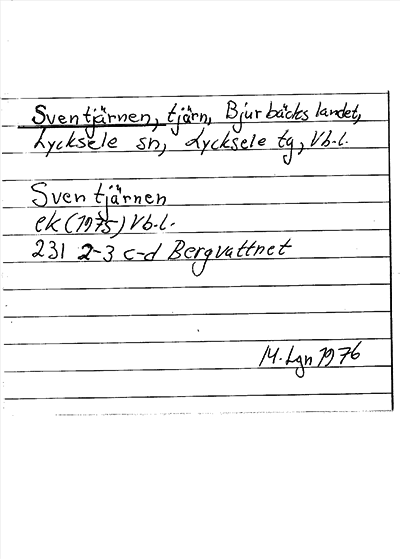 Sventjärnen, tjärn, Bjurbäckslandet,
Lycksele sn, Lycksele tg, Vb.l.
Sventjärnen
ek (1975) Vb.l.
231 2-3 c-d Bergvattnet
M. Lgn 1976